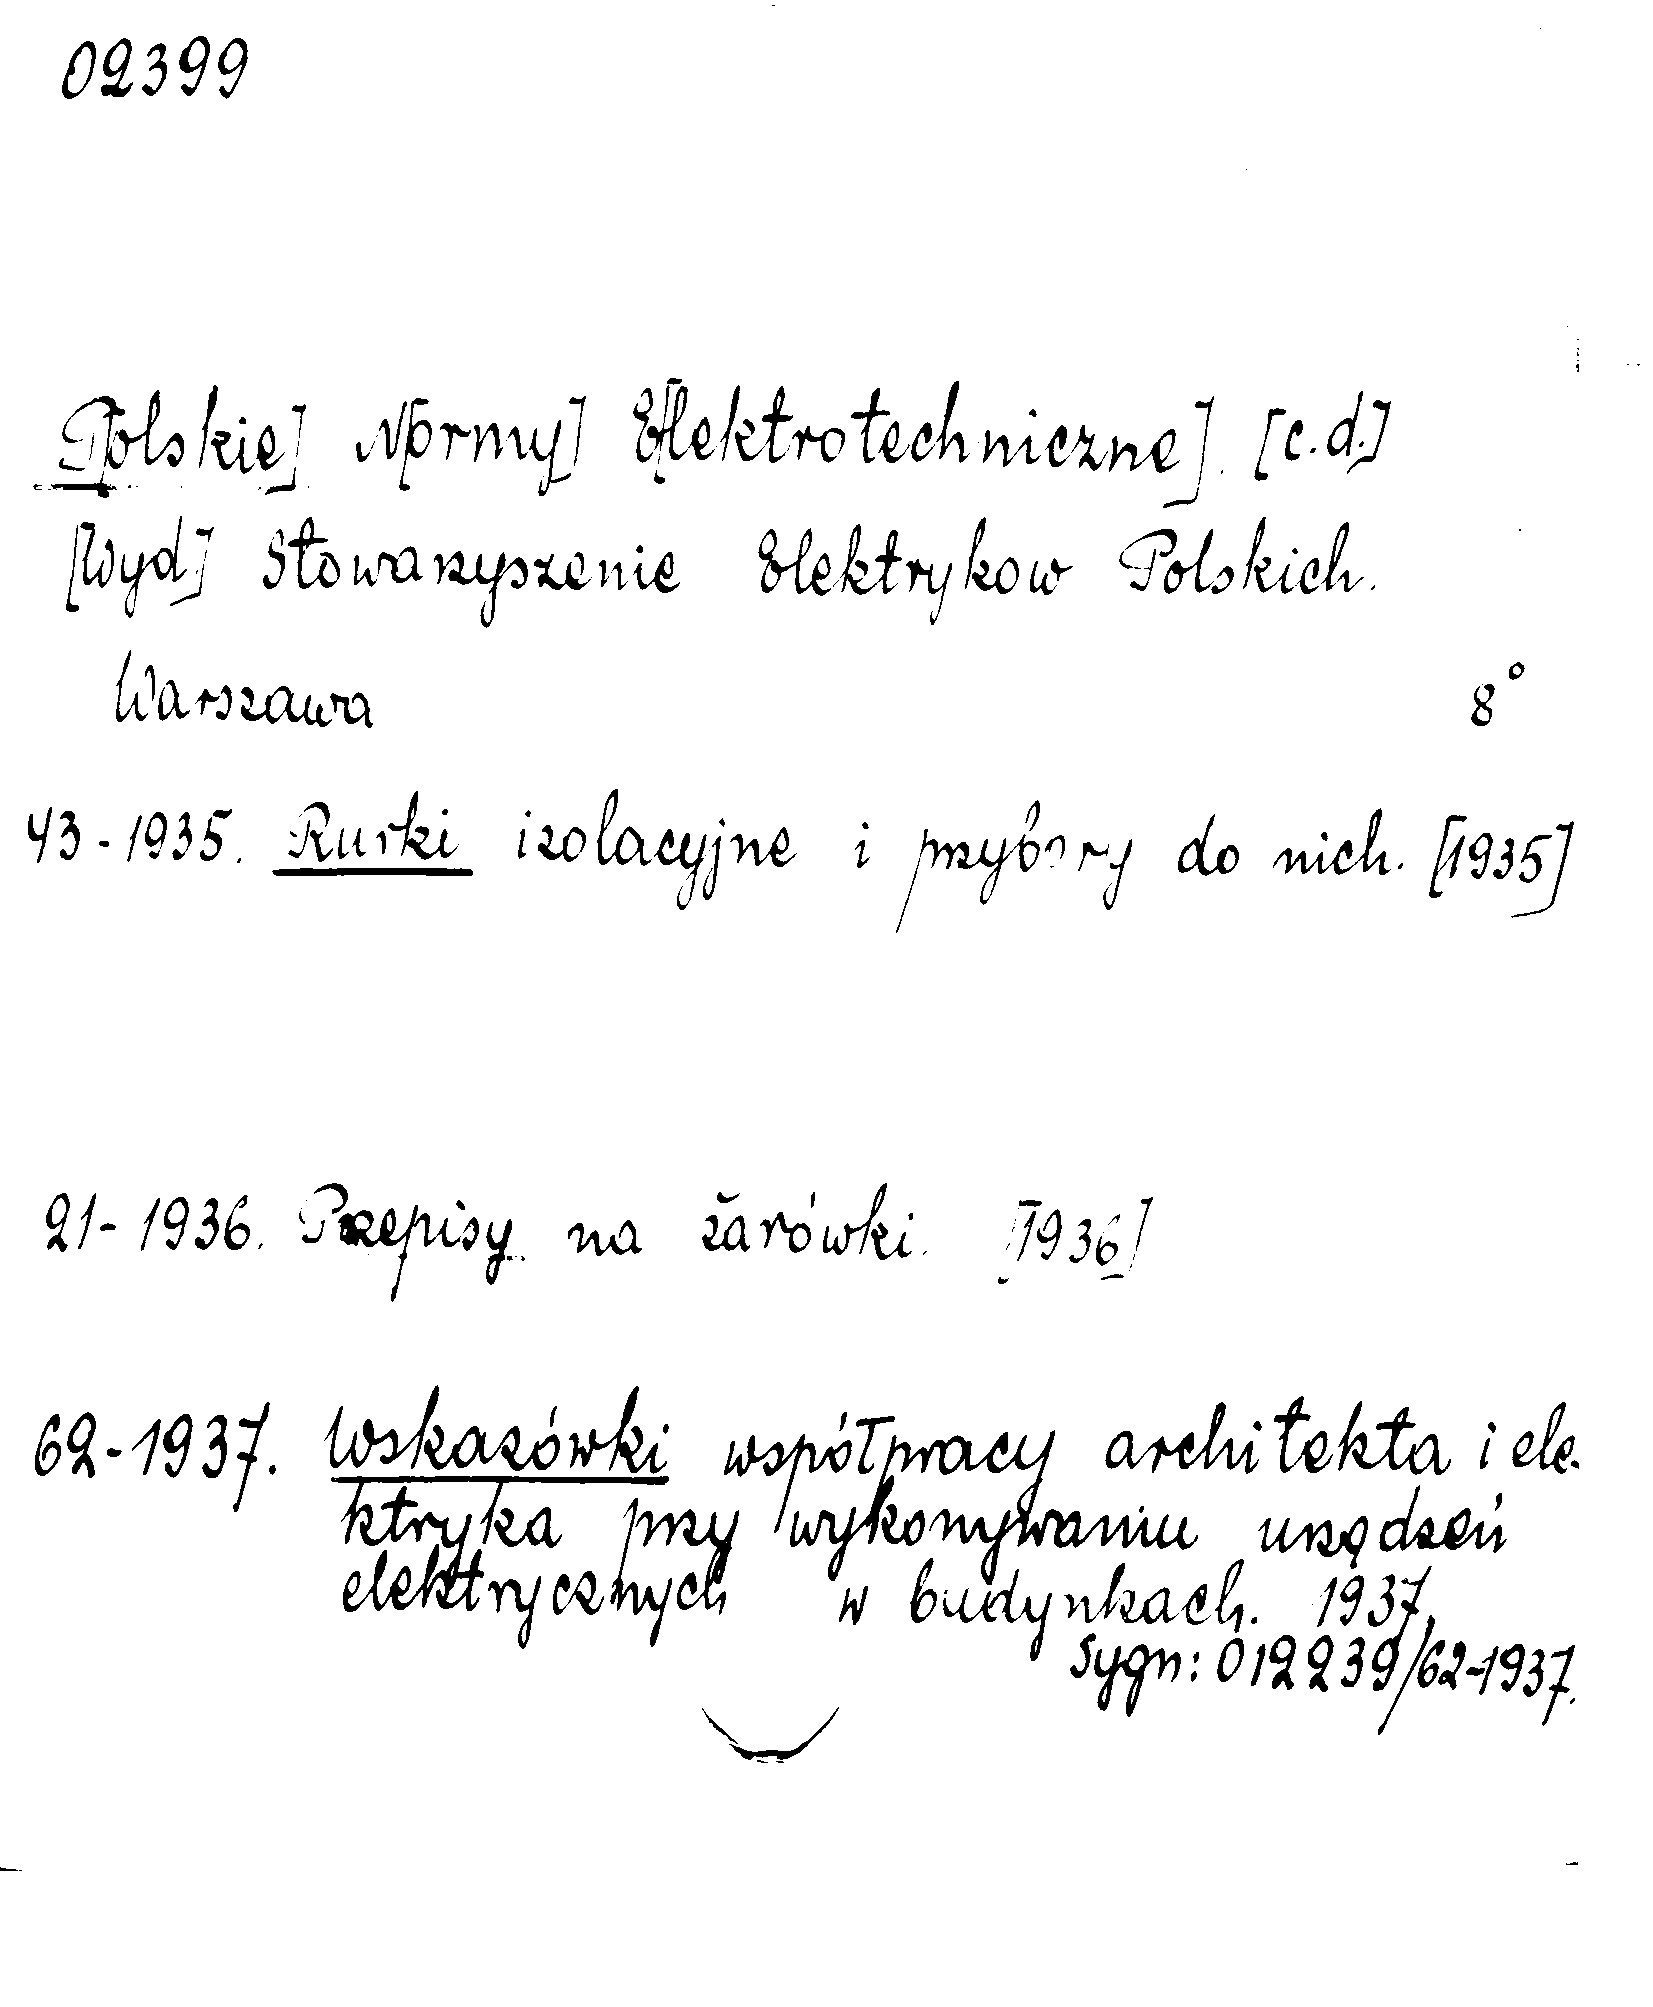 02399
P[olskie] N[ormy] E[lektrotechniczne]. [c.d.]
[Wyd] Stowarzyszenie Elektrykow Polskich.
Warszawa 8°
43-1935. Rurki izolacyjne i przybory do nich. [1935]
21-1936. Przepisy na żarówki. [1936]
62-1937. Wskazówki współpracy architekta i ele-
ktryka przy wykonywaniu urządzeń
elektrycznych w budynkach. 1937.
Sygn: 012239/62-1937.